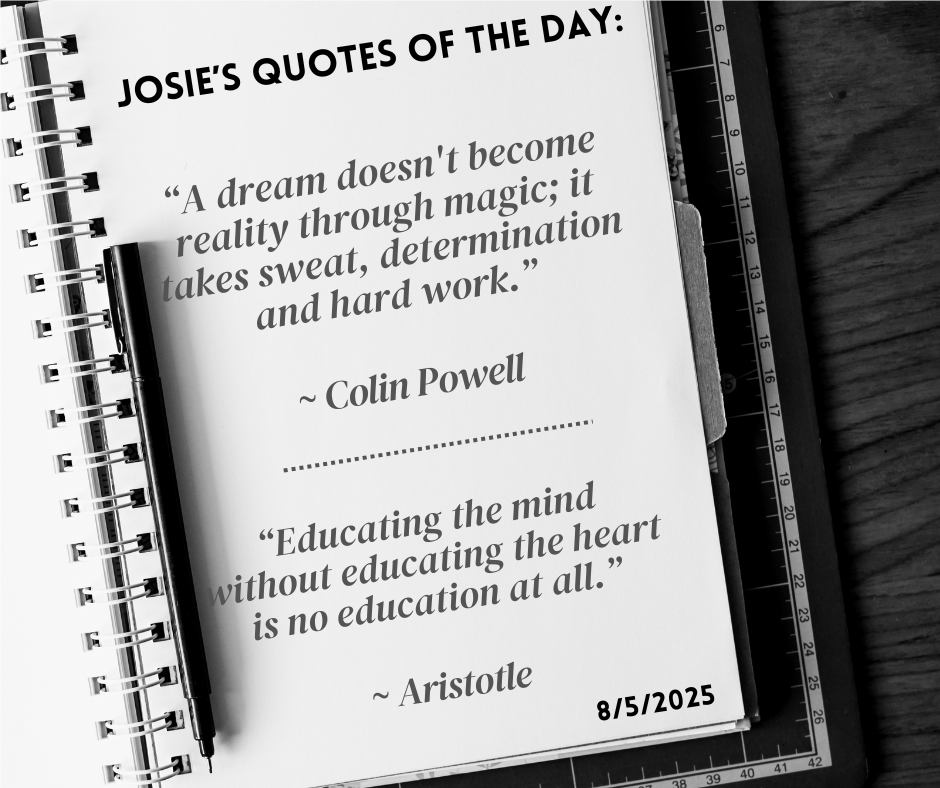 JOSIE'S QUOTES OF THE DAY:
“A dream doesn't become
reality through magic; it
takes sweat, determination
and hard work.”
~ Colin Powell
“Educating the mind
without educating the heart
is no education at all.”
~ Aristotle
8/5/2025
6
7
8
9
10
11
12
13
14
15
16
17
18
19
20
21
22
23
24
25
26
37
38
39
40
41
42